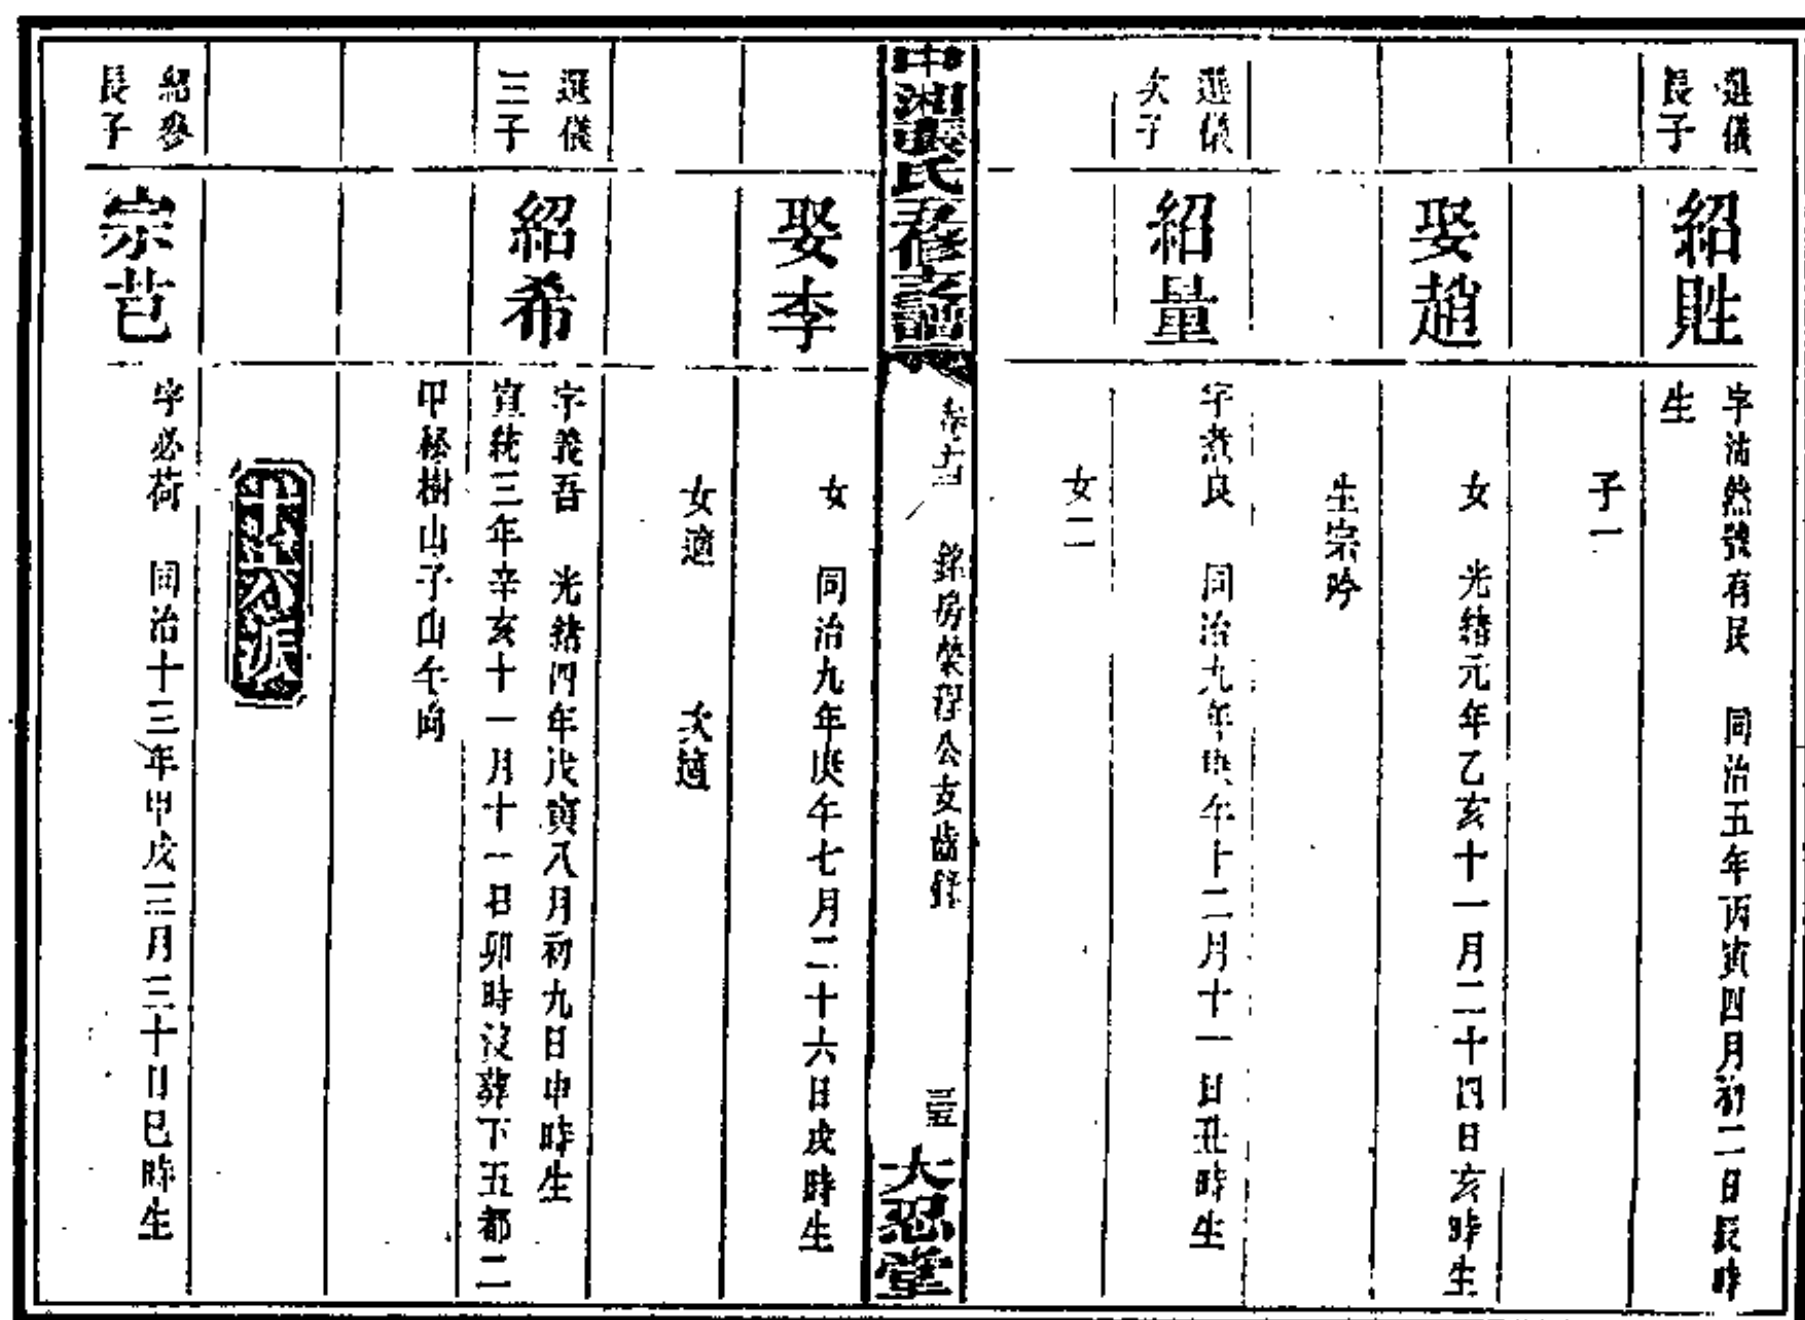 選儀
長子
紹貹
字沽然號有民 同治五年丙寅四月初二日辰時
生
子一
娶趙
女 光緒元年乙亥十一月二十四日亥時生
生宗昑
選儀
次子
紹量
字煮良 同治九年庚午十二月十一日丑時生
女二
中湘張氏五修支譜
銘房榮程公支齒錄
大忍堂
娶李
女 同治九年庚午七月二十六日戌時生
女適 次適
選儀
三子
紹希
字義吾 光緒四年戊寅八月初九日申時生
宣統三年辛亥十一月十一日卯時沒葬下五都二
甲松樹山子山午向
十六派
紹參
長子
宗芑
字必荷 同治十三年甲戌三月三十日巳時生